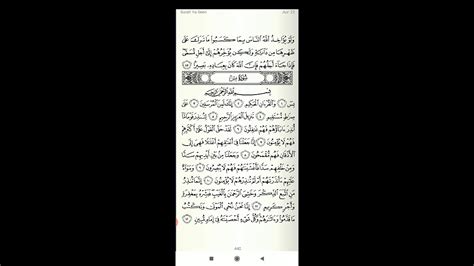 Surah Ya Seen
Juz' 22
وَلَوْ يُؤَاخِذُ اللَّهُ النَّاسَ بِمَا كَسَبُوا مَا تَرَكَ عَلَىٰ
ظَهْرِهَا مِن دَابَّةٍ وَلَٰكِن يُؤَخِّرُهُمْ إِلَىٰ أَجَلٍ مُّسَمًّى
فَإِذَا جَاءَ أَجَلُهُمْ فَإِنَّ اللَّهَ كَانَ بِعِبَادِهِ بَصِيرًا ٤٥
سُورَةُ يسٓ
بِسْمِ اللَّهِ الرَّحْمَٰنِ الرَّحِيمِ
يسٓ ١ وَالْقُرْآنِ الْحَكِيمِ ٢ إِنَّكَ لَمِنَ الْمُرْسَلِينَ ٣ عَلَىٰ
صِرَاطٍ مُّسْتَقِيمٍ ٤ تَنزِيلَ الْعَزِيزِ الرَّحِيمِ ٥ لِتُنذِرَ قَوْمًا مَّا
أُنذِرَ آبَاؤُهُمْ فَهُمْ غَافِلُونَ ٦ لَقَدْ حَقَّ الْقَوْلُ عَلَىٰ أَكْثَرِهِمْ
فَهُمْ لَا يُؤْمِنُونَ ٧ إِنَّا جَعَلْنَا فِي أَعْنَاقِهِمْ أَغْلَالًا فَهِيَ إِلَى
الْأَذْقَانِ فَهُم مُّقْمَحُونَ ٨ وَجَعَلْنَا مِن بَيْنِ أَيْدِيهِمْ سَدًّا
وَمِنْ خَلْفِهِمْ سَدًّا فَأَغْشَيْنَاهُمْ فَهُمْ لَا يُبْصِرُونَ ٩ وَسَوَاءٌ
عَلَيْهِمْ أَأَنذَرْتَهُمْ أَمْ لَمْ تُنذِرْهُمْ لَا يُؤْمِنُونَ ١٠ إِنَّمَا تُنذِرُ
مَنِ اتَّبَعَ الذِّكْرَ وَخَشِيَ الرَّحْمَٰنَ بِالْغَيْبِ فَبَشِّرْهُ بِمَغْفِرَةٍ
وَأَجْرٍ كَرِيمٍ ١١ إِنَّا نَحْنُ نُحْيِي الْمَوْتَىٰ وَنَكْتُبُ
مَا قَدَّمُوا وَآثَارَهُمْ وَكُلَّ شَيْءٍ أَحْصَيْنَاهُ فِي إِمَامٍ مُّبِينٍ ١٢
440